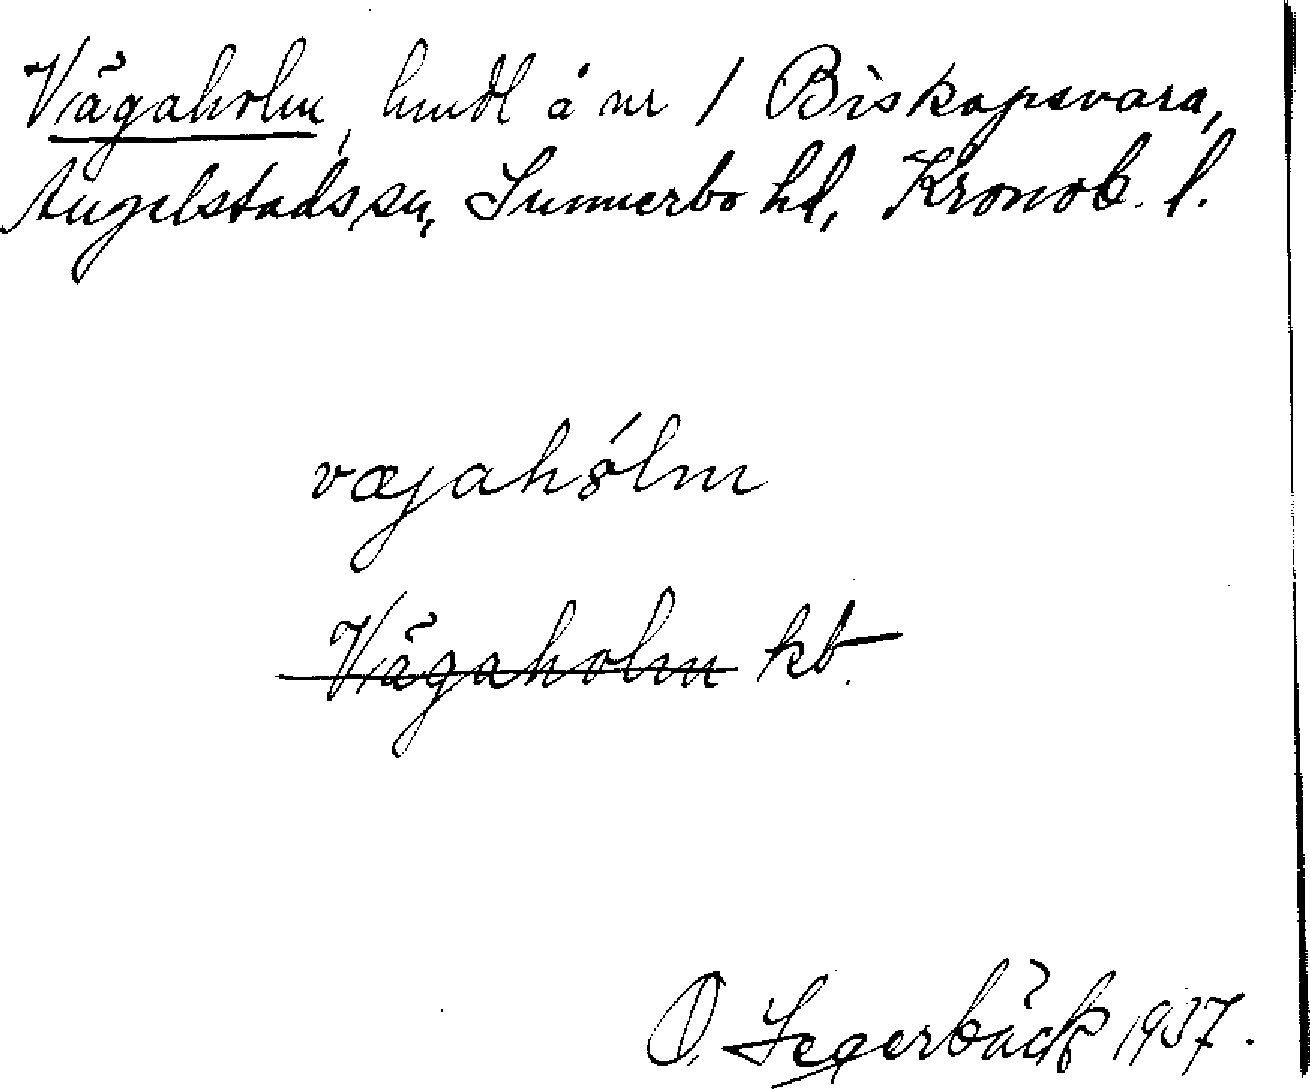 Vägaholm, lmdl å nr 1 Biskopsvara,
Angelstads sn, Sunnerbo hd, Kronob. l.
væjahólm
Vägaholm kb
O. Segerbäck 1937.